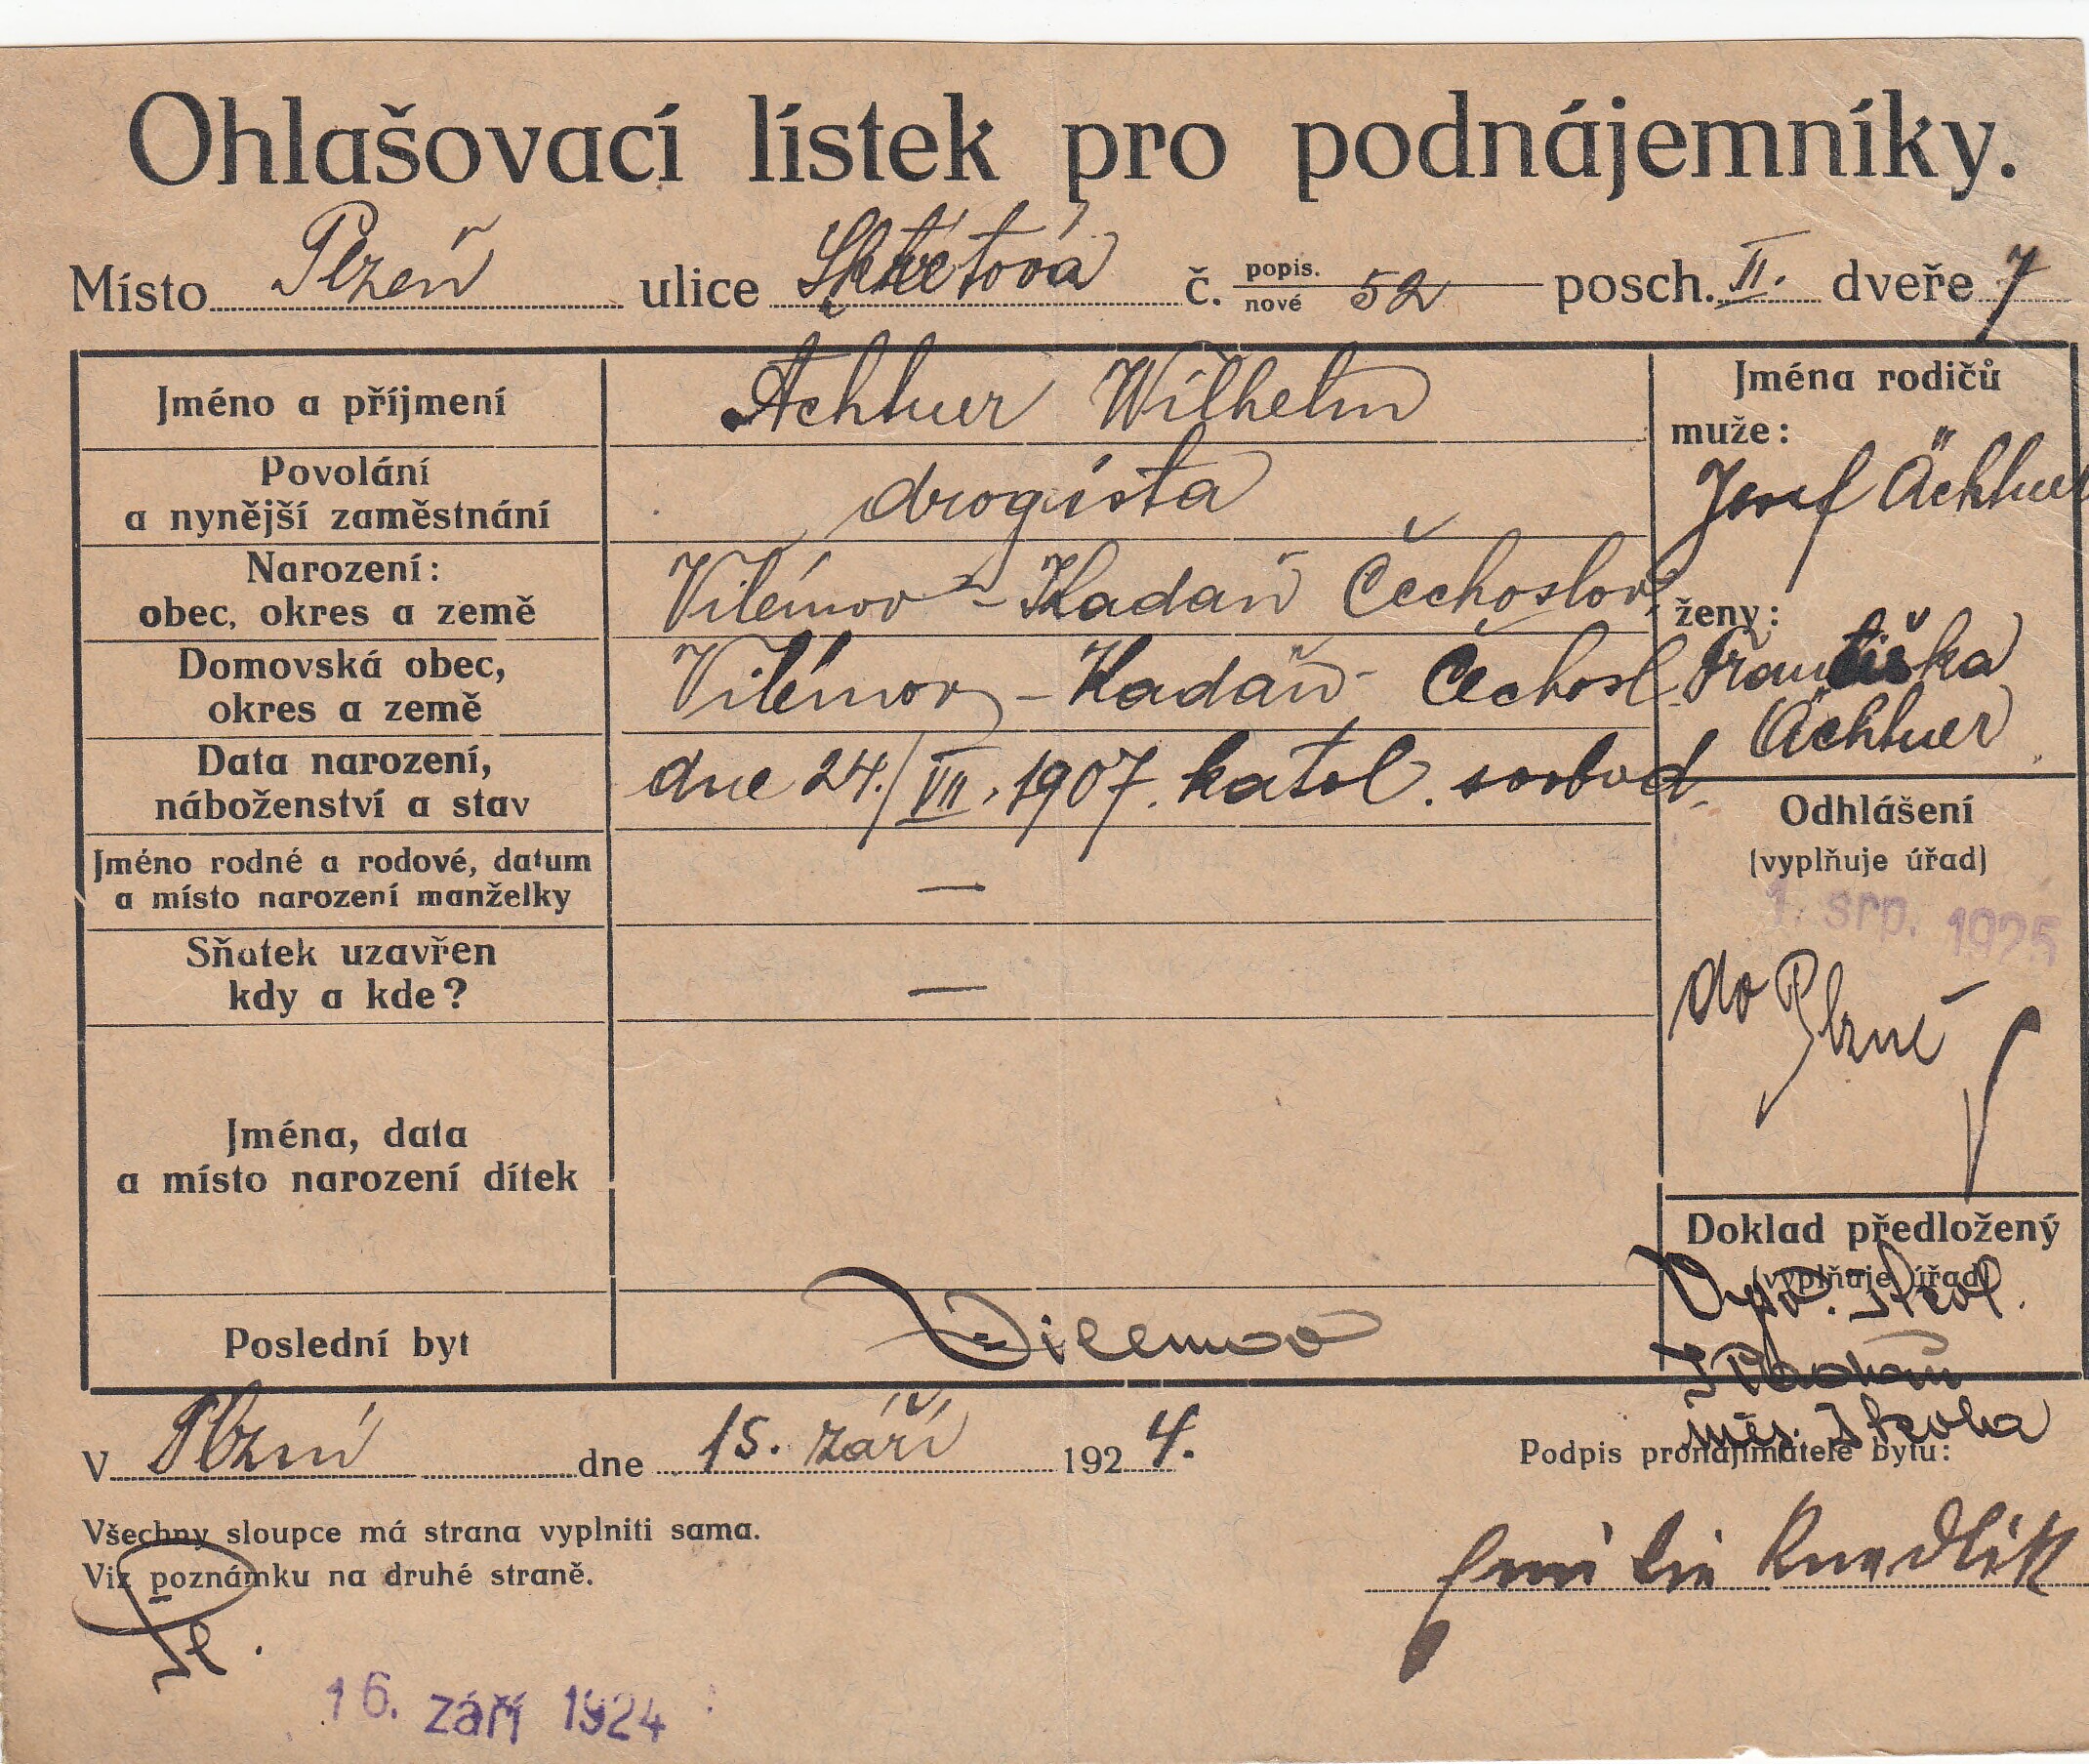 Ohlašovací lístek pro podnájemníky.
Místo Plzeň ulice Škrétova č. popis. nové 52 posch. II. dveře 7
Jméno a příjmení Achtner Wilhelm
Jména rodičů
muže:
Josef Ächtner
Povolání
a nynější zaměstnání drogista
Narození:
obec, okres a země Vilémov - Kadaň Čechoslov.
ženy:
Františka
Ächtner
Domovská obec,
okres a země Vilémov - Kadaň Čechosl.
Data narození,
náboženství a stav dne 24./VII. 1907. katol. svobod.
Odhlášení
(vyplňuje úřad)
1. srp. 1925
do Plzně
Jméno rodné a rodové, datum
a místo narození manželky —
Sňatek uzavřen
kdy a kde? —
Jména, data
a místo narození dítek
Doklad předložený
(vyplňuje úřad)
měš. škola
Poslední byt Vilemov
V Plzni dne 15. září 1924.
Podpis pronajímatele bytu:
Všechny sloupce má strana vyplniti sama.
Viz poznámku na druhé straně.
Emilie Knedlik
16. září 1924